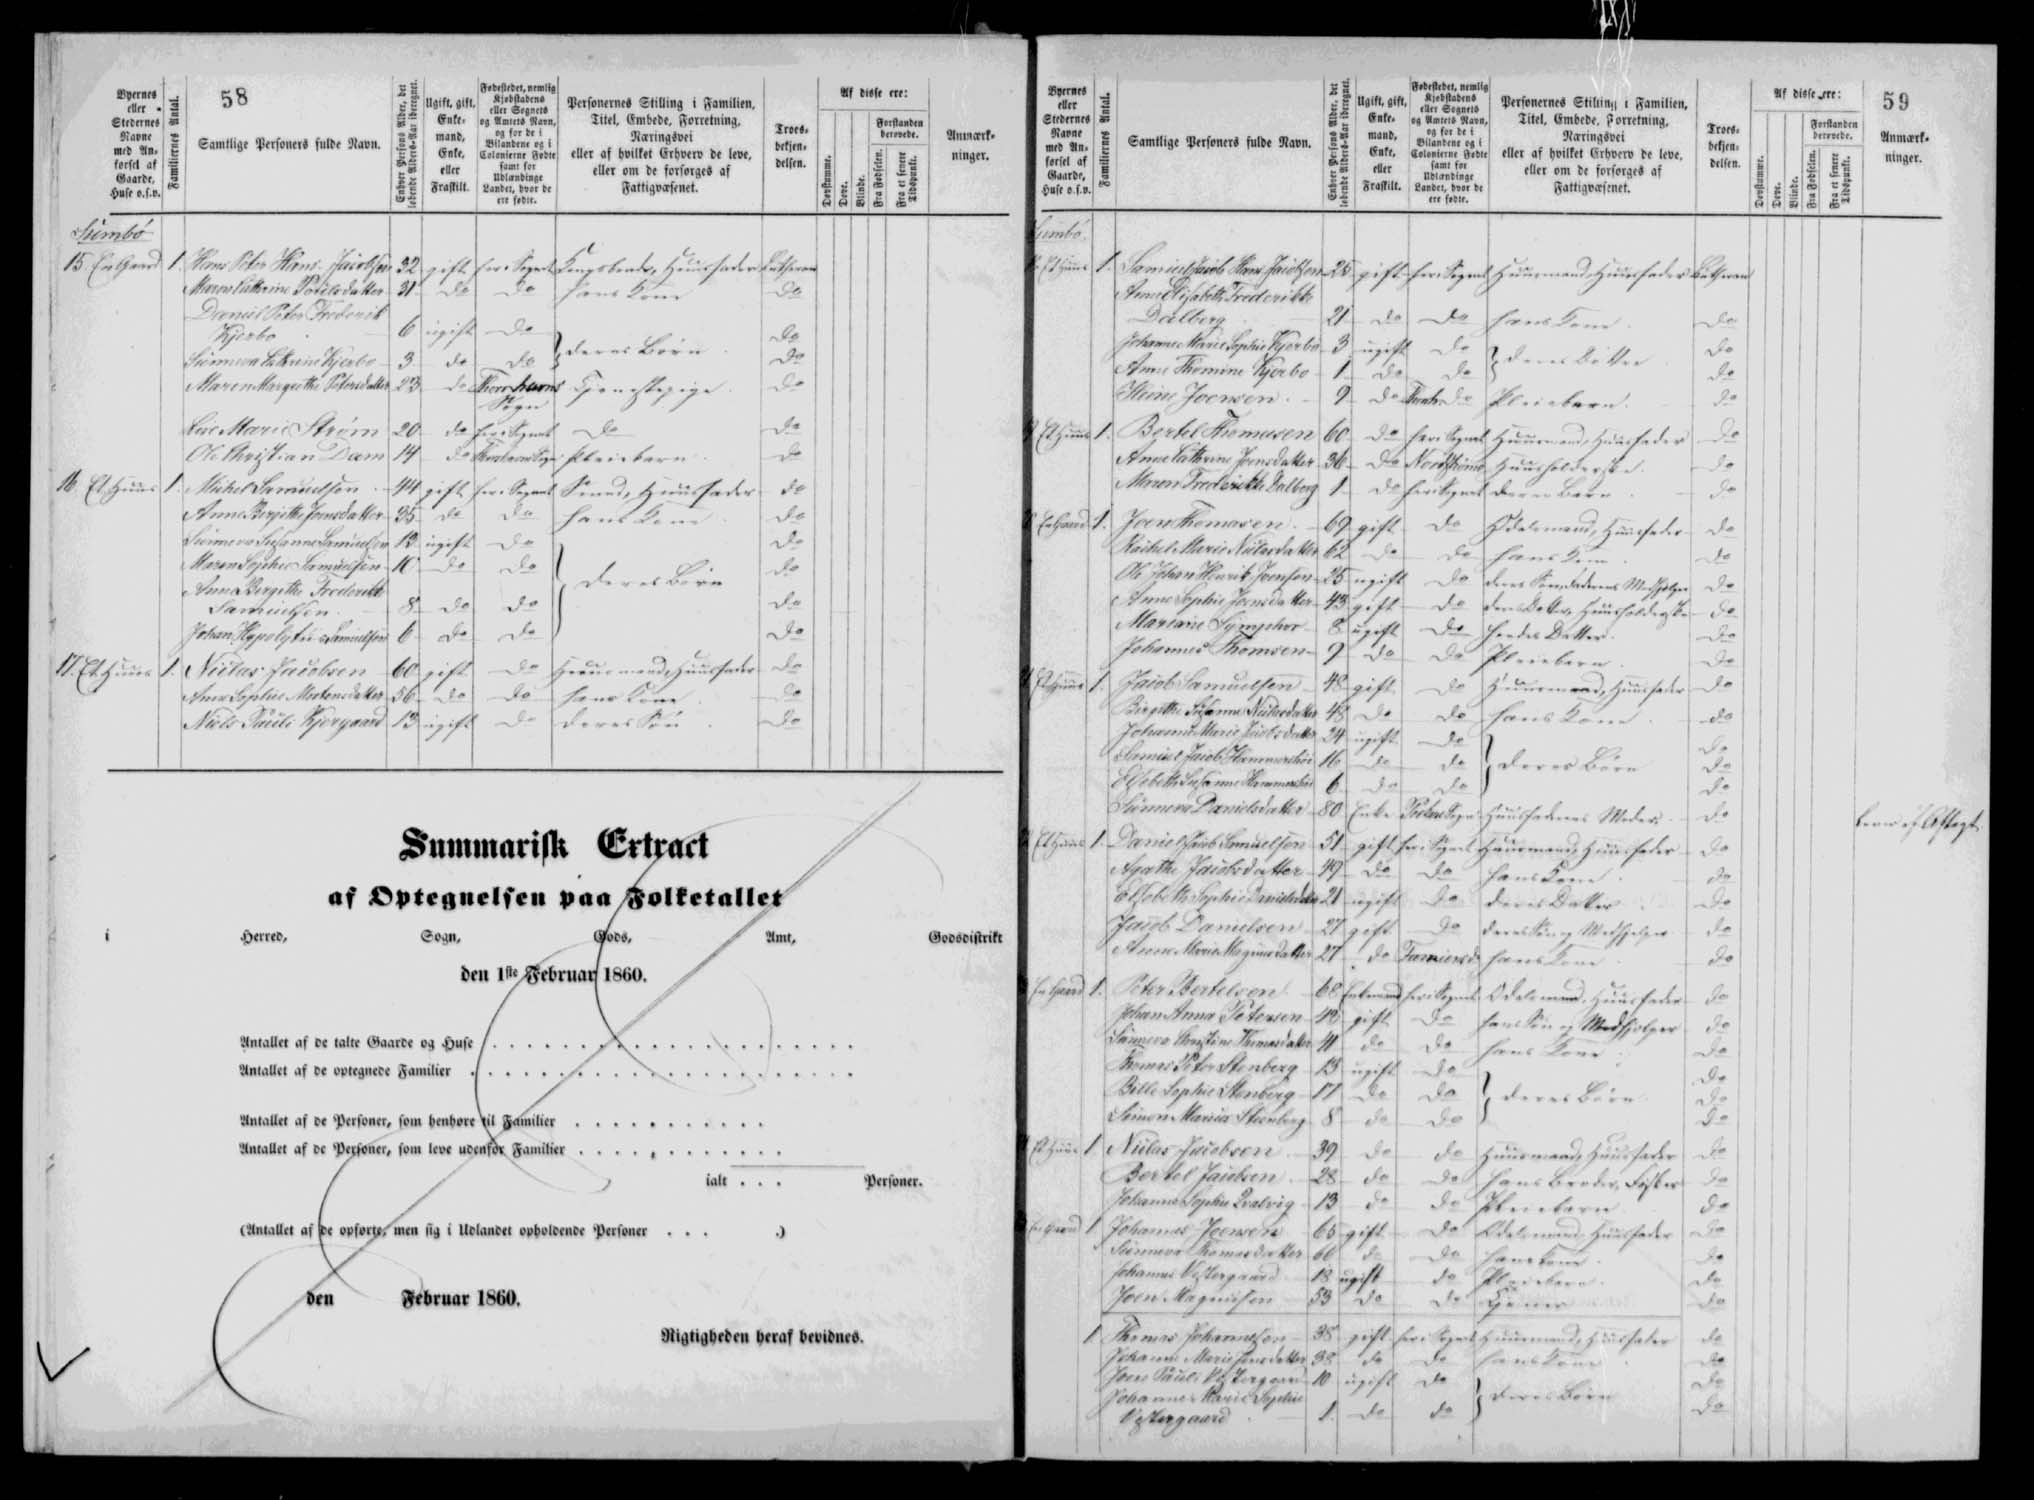 58
Byernes eller Stedernes Navne med Anførsel af Gaarde, Huse o.s.v.
Familiernes Antal.
Samtlige Personers fulde Navn.
Enhver Persons Alder, det løbende Alders-Aar iberegnet.
Ugift, gift, Enkemand, Enke, eller Fraskilt.
Fødestedet, nemlig Kjøbstadens eller Sognets og Amtets Navn, og for de i Bilandene og i Colonierne Fødte samt for Udlændinge Landet, hvor de ere fødte.
Personernes Stilling i Familien, Titel, Embede, Forretning, Næringsvei eller af hvilket Erhverv de leve, eller om de forsørges af Fattigvæsenet.
Troesbekjendelsen.
Af disse ere:
Døvstumme.
Døve.
Blinde.
Forstanden berøvede.
Fra Fødselen.
Fra et senere Tidspunkt.
Anmærkninger.
Sumbø
15. En Gaard 1. Hans Peter Hans Jacobsen 32 gift her i Sognet Kongsbonde, Huusfader Luthersk
Maren Cathrine Poulsdatter 31 do do hans Kone do
Daniel Peter Frederik
Kjerbo 6 ugift do do
Sünneva Cathrine Kjerbo 3 do do } deres Børn do
Maren Margrethe Petersdatter 23 do Thorshavns Sogn Tjenestepige do
Lise Marie Strøm 20 do her i Sognet do do
Ole Christian Dam 14 do Pleiebarn do
16. Et Huus 1. Michel Samuelsen 44 gift her i Sognet Smed, Huusfader do
Anne Birgithe Joensdatter 35 do do hans Kone do
Sünneva Susanne Samuelsen 13 ugift do do
Maren Sophie Samuelsen 10 do do } deres Børn do
Anna Birgithe Frederikke
Samuelsen 8 do do do
Johan Hypolytus Samuelsen 6 do do do
17. Et Huus 1. Niclas Jacobsen 60 gift do Huusmand, Huusfader do
Anne Sophie Mortensdatter 56 do do hans Kone do
Niels Pauli Kjergaard 13 ugift do deres Søn do
Summarisk Extract
af Optegnelsen paa Folketallet
i Herred, Sogn, Gods, Amt, Godsdistrikt
den 1ste Februar 1860.
Antallet af de talte Gaarde og Huse
Antallet af de optegnede Familier
Antallet af de Personer, som henhøre til Familier
Antallet af de Personer, som leve udenfor Familier
ialt . . . Personer.
(Antallet af de opførte, men sig i Udlandet opholdende Personer . . . .)
den Februar 1860.
Rigtigheden heraf bevidnes.
59
Byernes eller Stedernes Navne med Anførsel af Gaarde, Huse o.s.v.
Familiernes Antal.
Samtlige Personers fulde Navn.
Enhver Persons Alder, det løbende Alders-Aar iberegnet.
Ugift, gift, Enkemand, Enke, eller Fraskilt.
Fødestedet, nemlig Kjøbstadens eller Sognets og Amtets Navn, og for de i Bilandene og i Colonierne Fødte samt for Udlændinge Landet, hvor de ere fødte.
Personernes Stilling i Familien, Titel, Embede, Forretning, Næringsvei eller af hvilket Erhverv de leve, eller om de forsørges af Fattigvæsenet.
Troesbekjendelsen.
Af disse ere:
Døvstumme.
Døve.
Blinde.
Forstanden berøvede.
Fra Fødselen.
Fra et senere Tidspunkt.
Anmærkninger.
Sumbø.
Et Huus 1. Samuel Jacob Hans Jacobsen 25 gift her i Sognet Huusmand, Huusfader Luthersk
Anne Elisabeth Frederikke
Dalberg 21 do do hans Kone do
Johanne Marie Sophie Kjerbo 3 ugift do } deres Døttre do
Anne Thomine Kjerbo 1 do do do
Heine Joensen 9 do do Pleiebarn do
Et Huus 1. Bertel Thomasen 60 do her i Sognet Huusmand, Huusfader do
Anne Cathrine Joensdatter 36 do Nordstrømø Huusholderske do
Maren Frederikke Dalberg 1 do her i Sognet deres Barn do
En Gaard 1. Joen Thomasen 69 gift do Odelsmand, Huusfader do
Rachel Marie Niclasdatter 62 do do hans Kone do
Ole Johan Henrik Joensen 25 ugift do do
Anne Sophie Joensdatter 43 gift do deres Datter, Huusholderske do
Mariane Symphor 8 ugift do hendes Datter do
Johannes Thomsen 9 do do Pleiebarn do
Et Huus 1. Jacob Samuelsen 48 gift do Huusmand, Huusfader do
Birgithe Susanne Niclasdatter 48 do do hans Kone do
Johanne Marie Jacobsdatter 24 ugift do do
Samuel Jacob Hammershøi 16 do do } deres Børn do
Elsebeth Susanne Hammershøi 6 do do do
Sünneva Danielsdatter 80 Enke Huusfaderens Moder do lever af Aftægt
Et Huus 1. Daniel Jacob Samuelsen 51 gift her i Sognet Huusmand, Huusfader do
Agathe Jacobsdatter 49 do do hans Kone do
Elsebeth Sophie Danielsdatter 21 ugift do deres Datter do
Jacob Danielsen 27 gift do deres Søn og Medhjelper do
Anne Marie Magnusdatter 27 do hans Kone do
En Gaard 1. Peter Bertelsen 68 Enkemand her i Sognet Odelsmand, Huusfader do
Johan Anna Petersen 42 gift do hans Søn og Medhjelper do
Sünneva Christine Thomasdatter 41 do do hans Kone do
Thomas Peter Stenberg 13 ugift do do
Bille Sophie Stenberg 17 do do } deres Børn do
Simon Marius Stenberg 8 do do do
Et Huus 1 Niclas Jacobsen 39 do do Huusmand, Huusfader do
Bertel Jacobsen 28 do do hans Broder, Fisker do
Johanne Sophie Qvalvig 13 do do Pleiebarn do
En Gaard 1 Johannes Joensen 65 gift do Odelsmand, Huusfader do
Sünneva Thomasdatter 60 do do hans Kone do
Johannes Vestergaard 18 ugift do Pleiebarn do
Joen Magnusen 53 do do Tjener do
1. Thomas Johannesen 38 gift her i Sognet Huusmand, Huusfader do
Johanne Marie Jonsdatter 38 do do hans Kone do
Joen Pauli Vestergaard 10 ugift do do
Johanne Marie Sophie } deres Børn
Vestergaard 1 do do do